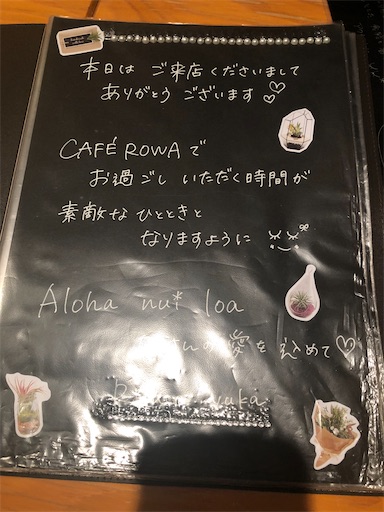 本日は ご来店くださいまして
ありがとう ございます♡♡
CAFÉ ROWAで
お過ごし いただく時間が
素敵な ひとときと
なりますように
Aloha nui loa
さんの愛を込めて♡